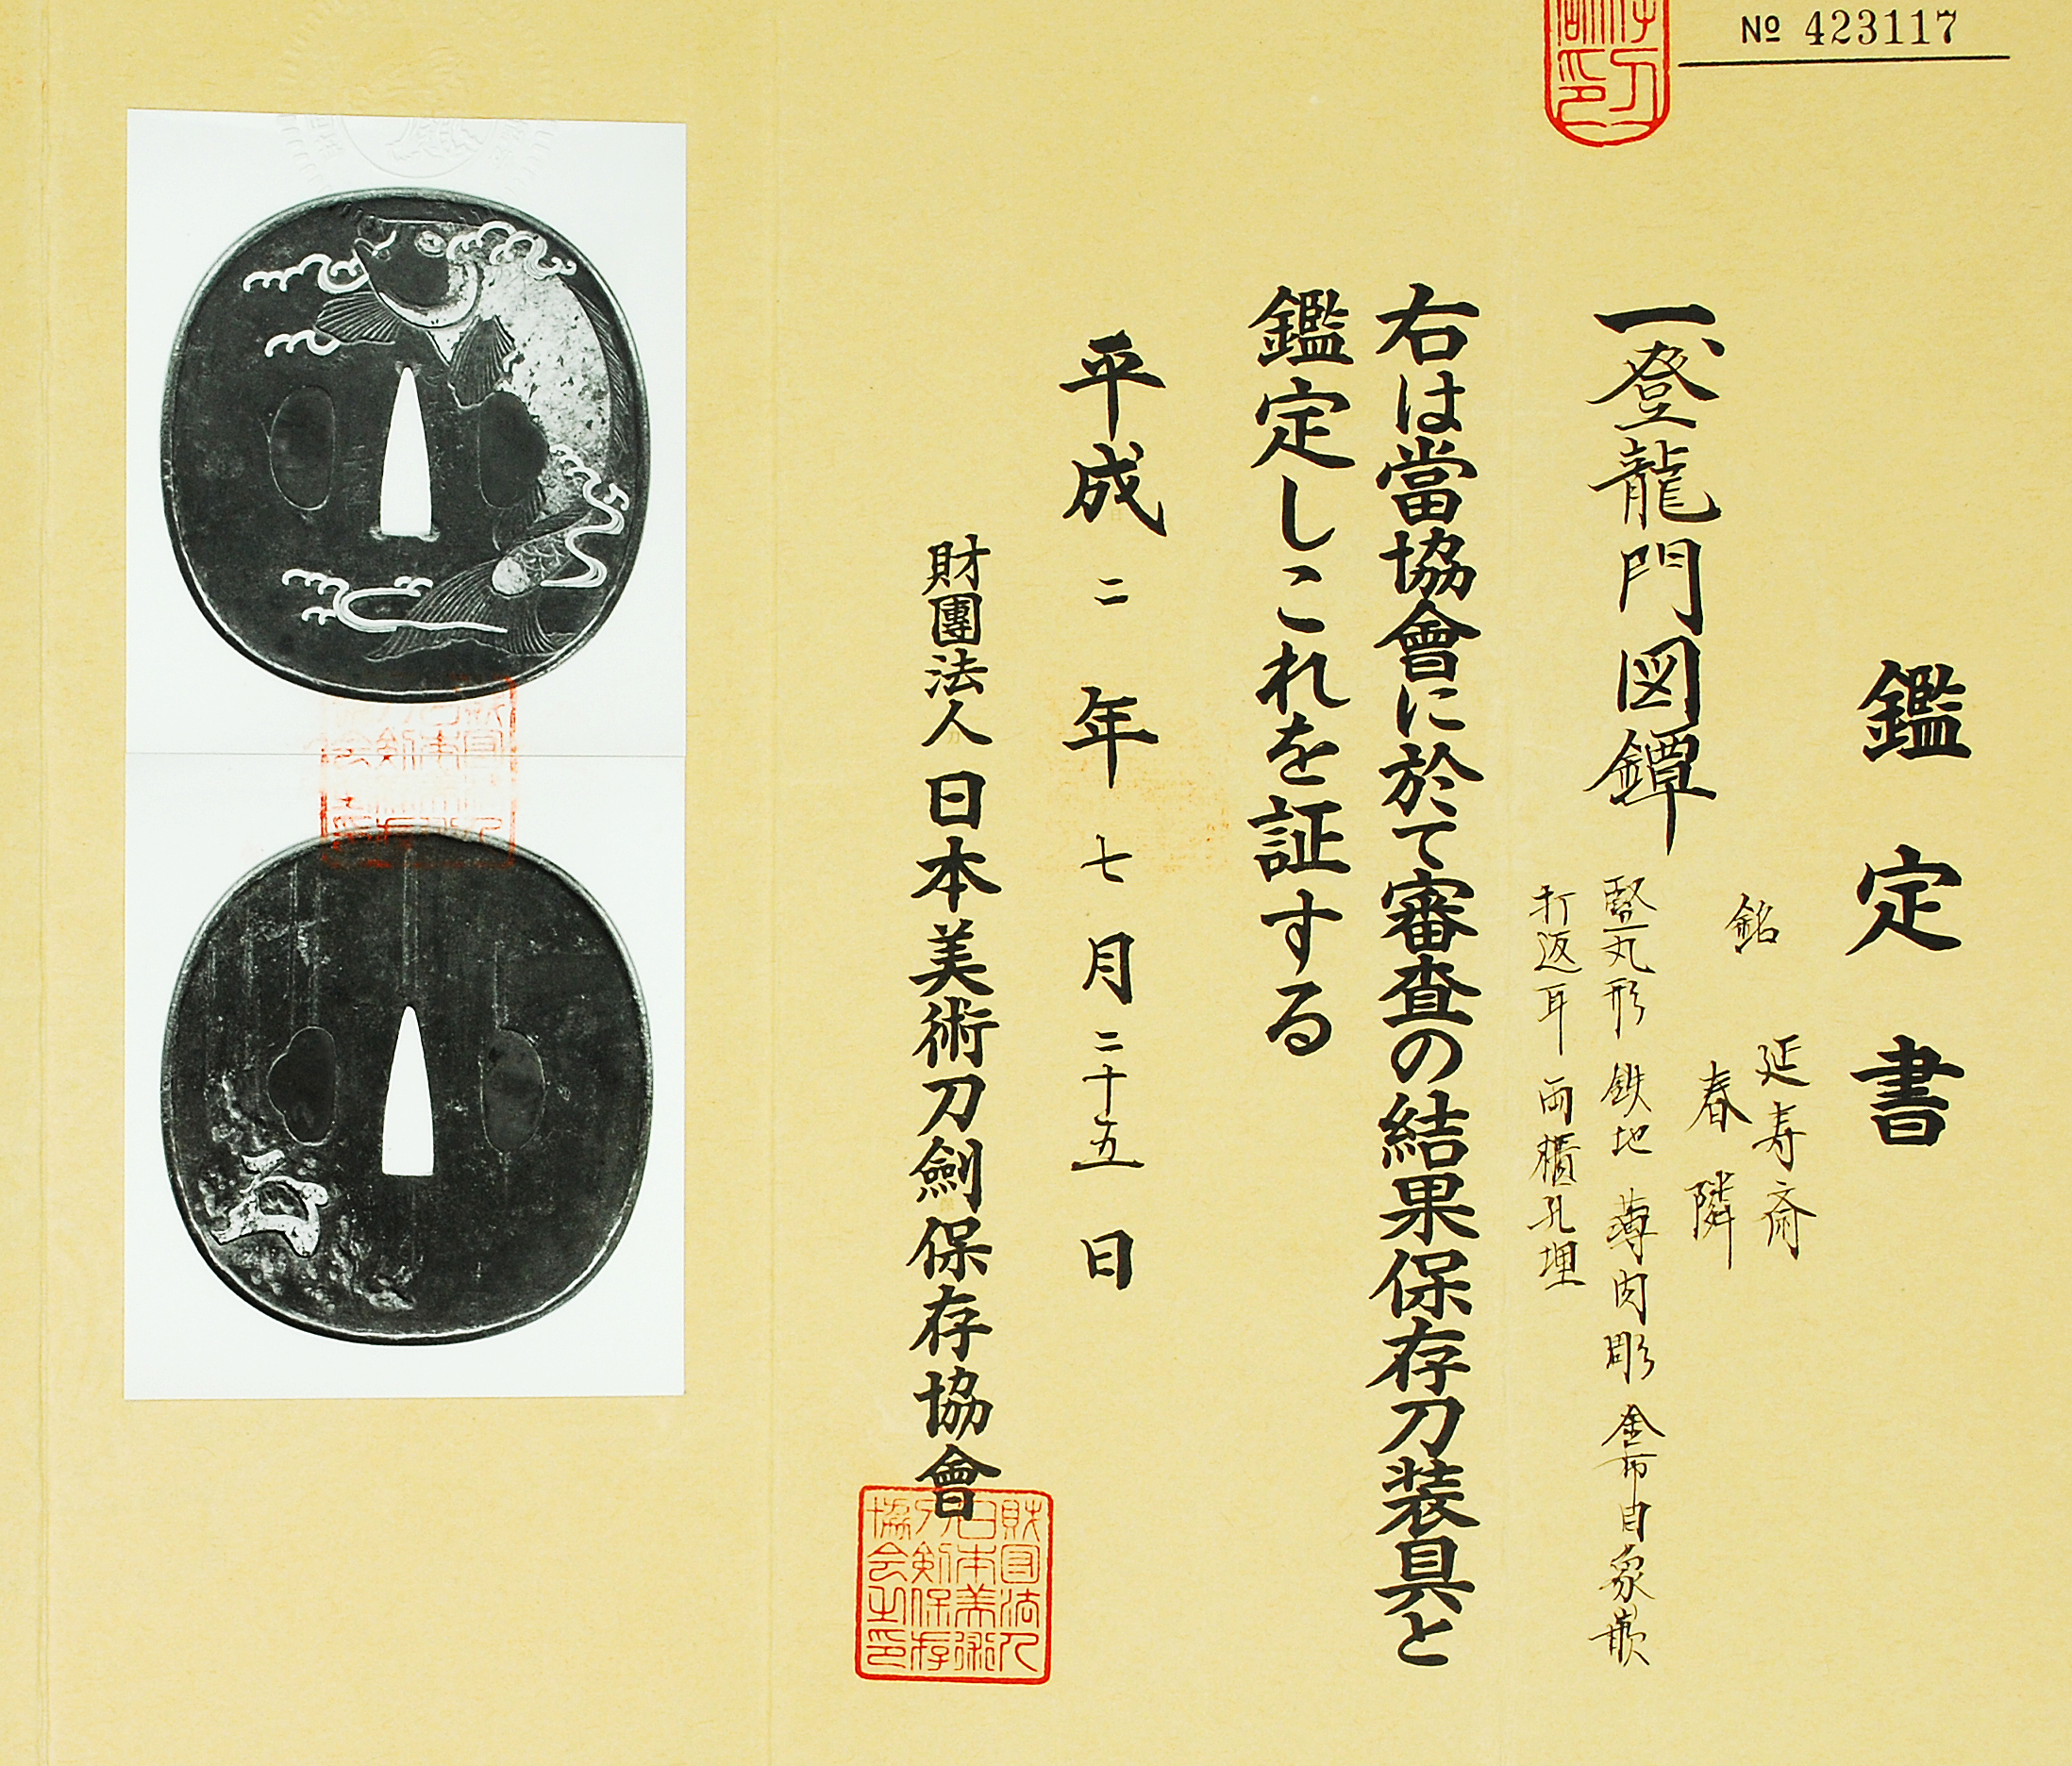 № 423117
鑑定書
一、登龍門図鐔
銘 延寿斎
春隣
竪丸形 鉄地 薄肉彫 金布目象嵌
打返耳 両櫃孔埋
右は當協會に於て審査の結果保存刀装具と
鑑定しこれを証する
平成二年七月二十五日
財團法人日本美術刀劍保存協會
財団法人
日本美術
刀剣保存
協会之印